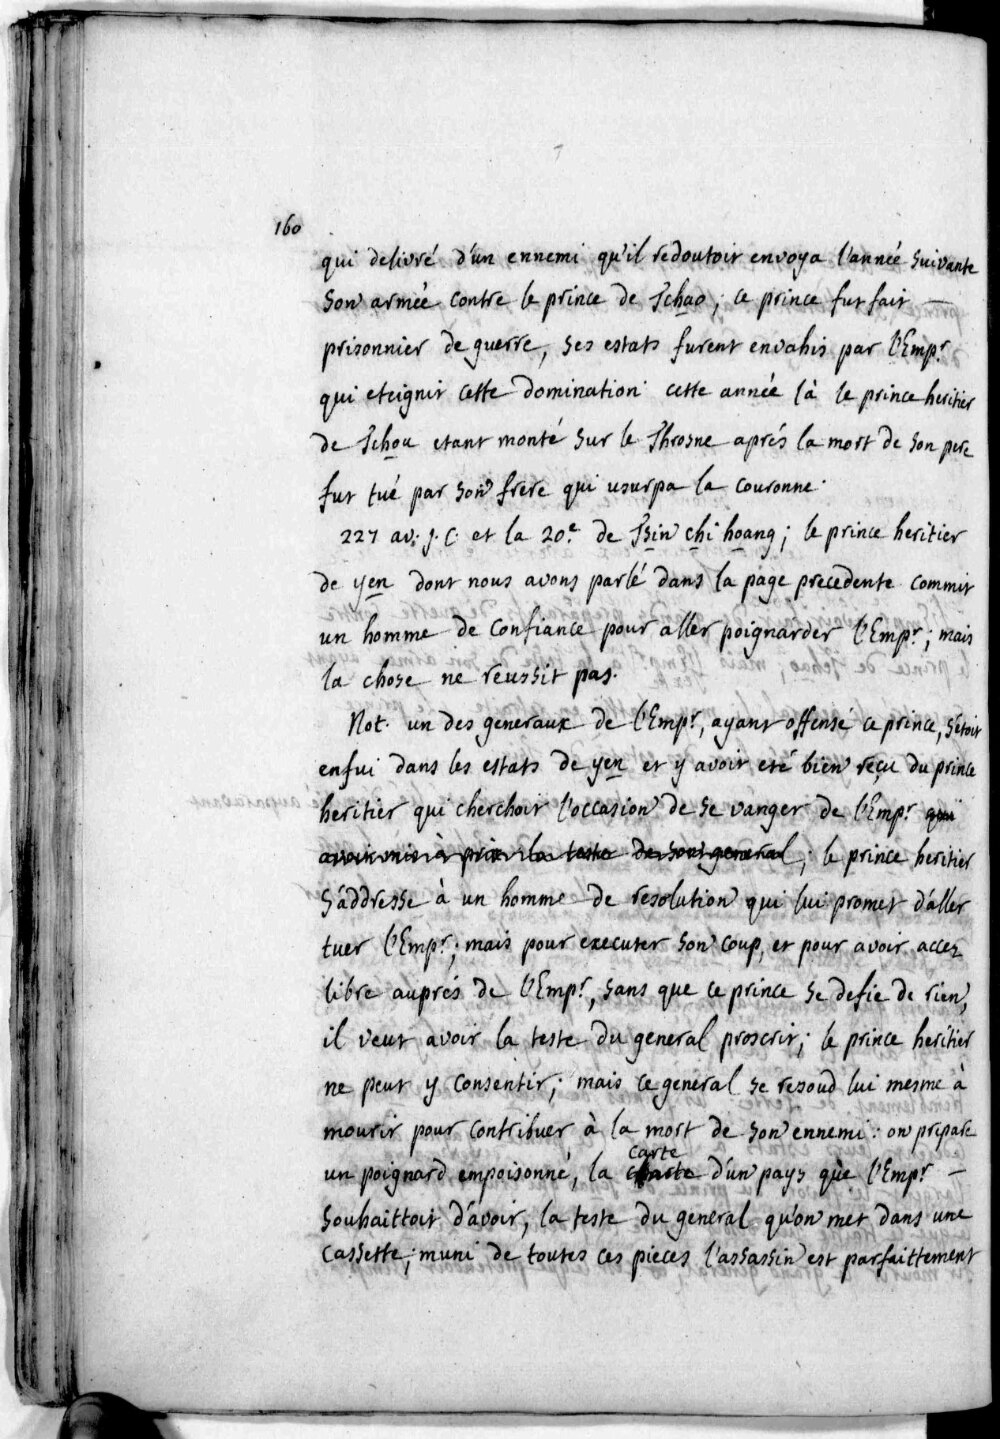 160
qui delivré d'un ennemi qu'il redoutoit envoya l'année suivante
son armée contre le prince de Tchao; ce prince fut fait —
prisonnier de guerre, ses estats furent envahis par l'Emp.r
qui eteignit cette domination. cette année là le prince heritier
de Tchou etant monté sur le Throsne aprés la mort de son pere
fut tué par son frere qui usurpa la couronne.
227 av. J. C. et la 20.e de Tsin chi hoang; le prince heritier
de yen dont nous avons parlé dans la page precedente commit
un homme de confiance pour aller poignarder l'Emp.r; mais
la chose ne reussit pas.
Not. un des generaux de l'Emp.r, ayant offensé ce prince, s'étoit
enfui dans les estats de yen et y avoit eté bien reçu du prince
heritier qui cherchoit l'occasion de se vanger de l'Emp.r qui
avoit mis à prix la teste de son general; le prince heritier
s'áddresse à un homme de resolution qui lui promet d'áller
tuer l'Emp.r; mais pour executer son coup, et pour avoir accez
libre auprés de l'Emp.r, sans que ce prince se defie de rien,
il veut avoir la teste du general proscrit; le prince heritier
ne peut y consentir; mais ce general se resoud lui mesme à
mourir pour contribuer à la mort de son ennemi: on prepare
carte
un poignard empoisonné, la d'un pays que l'Emp.r —
souhaittoit d'avoir, la teste du general qu'on met dans une
cassette; muni de toutes ces pieces l'assassin est parfaittement